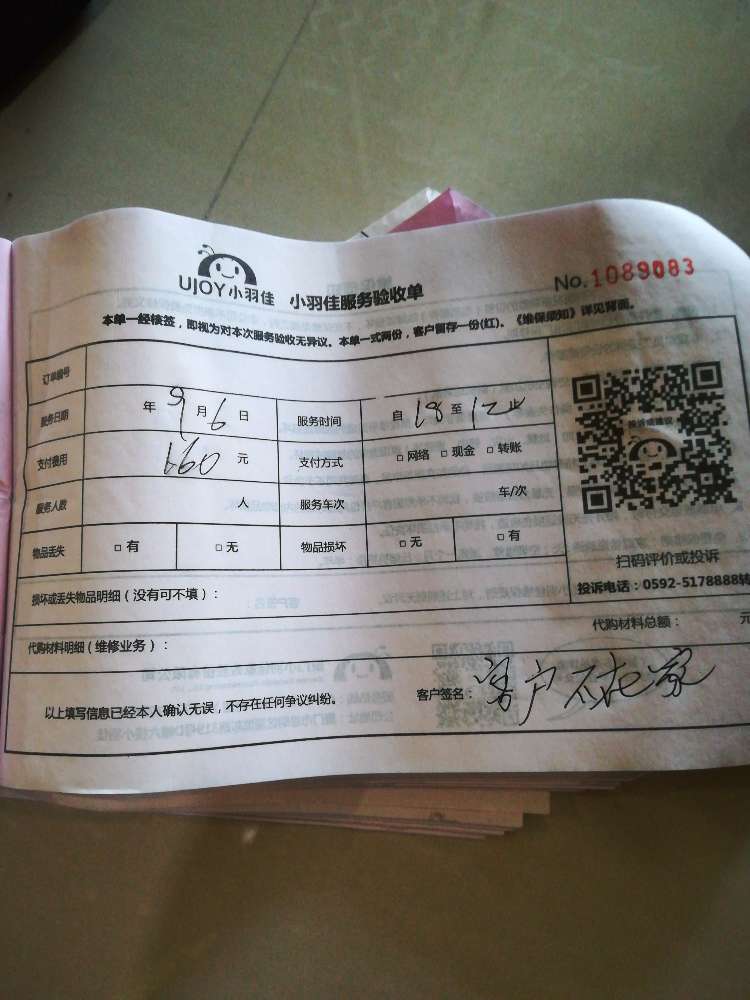 UJOY小羽佳 小羽佳服务验收单 No.1089083
本单一经核签，即视为对本次服务验收无异议。本单一式两份，客户留存一份(红)。《维保须知》详见背面。
订单编号
服务日期 年 9 月 6 日 服务时间 自 18 至 12 止
支付费用 160 元 支付方式 □ 网络 □ 现金 □ 转账
服务人数 人 服务车次 车/次
物品丢失 □ 有 □ 无 物品损坏 □ 无 □ 有
扫码评价或投诉
投诉电话：0592-5178888转
损坏或丢失物品明细（没有可不填）：
代购材料明细（维修业务）： 代购材料总额： 元
以上填写信息已经本人确认无误，不存在任何争议纠纷。 客户签名： 客户不在家